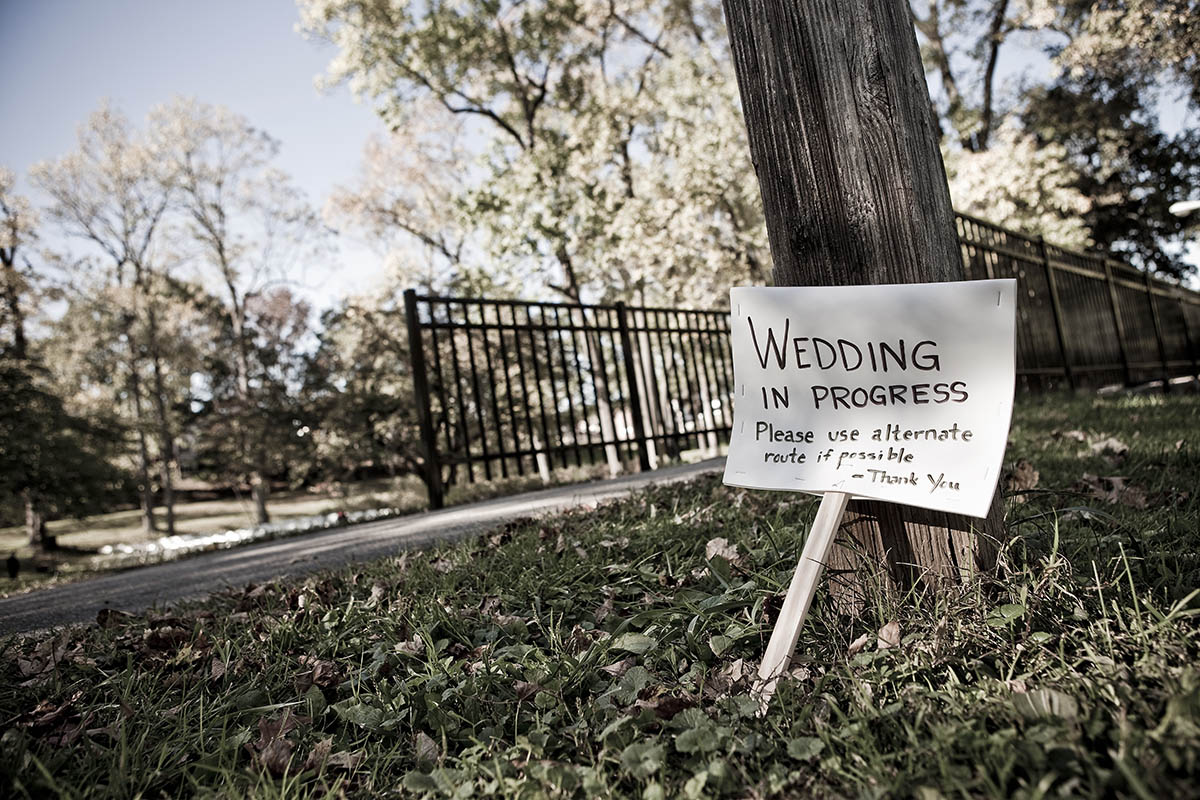 WEDDING
IN PROGRESS
Please use alternate
route if possible
- Thank You